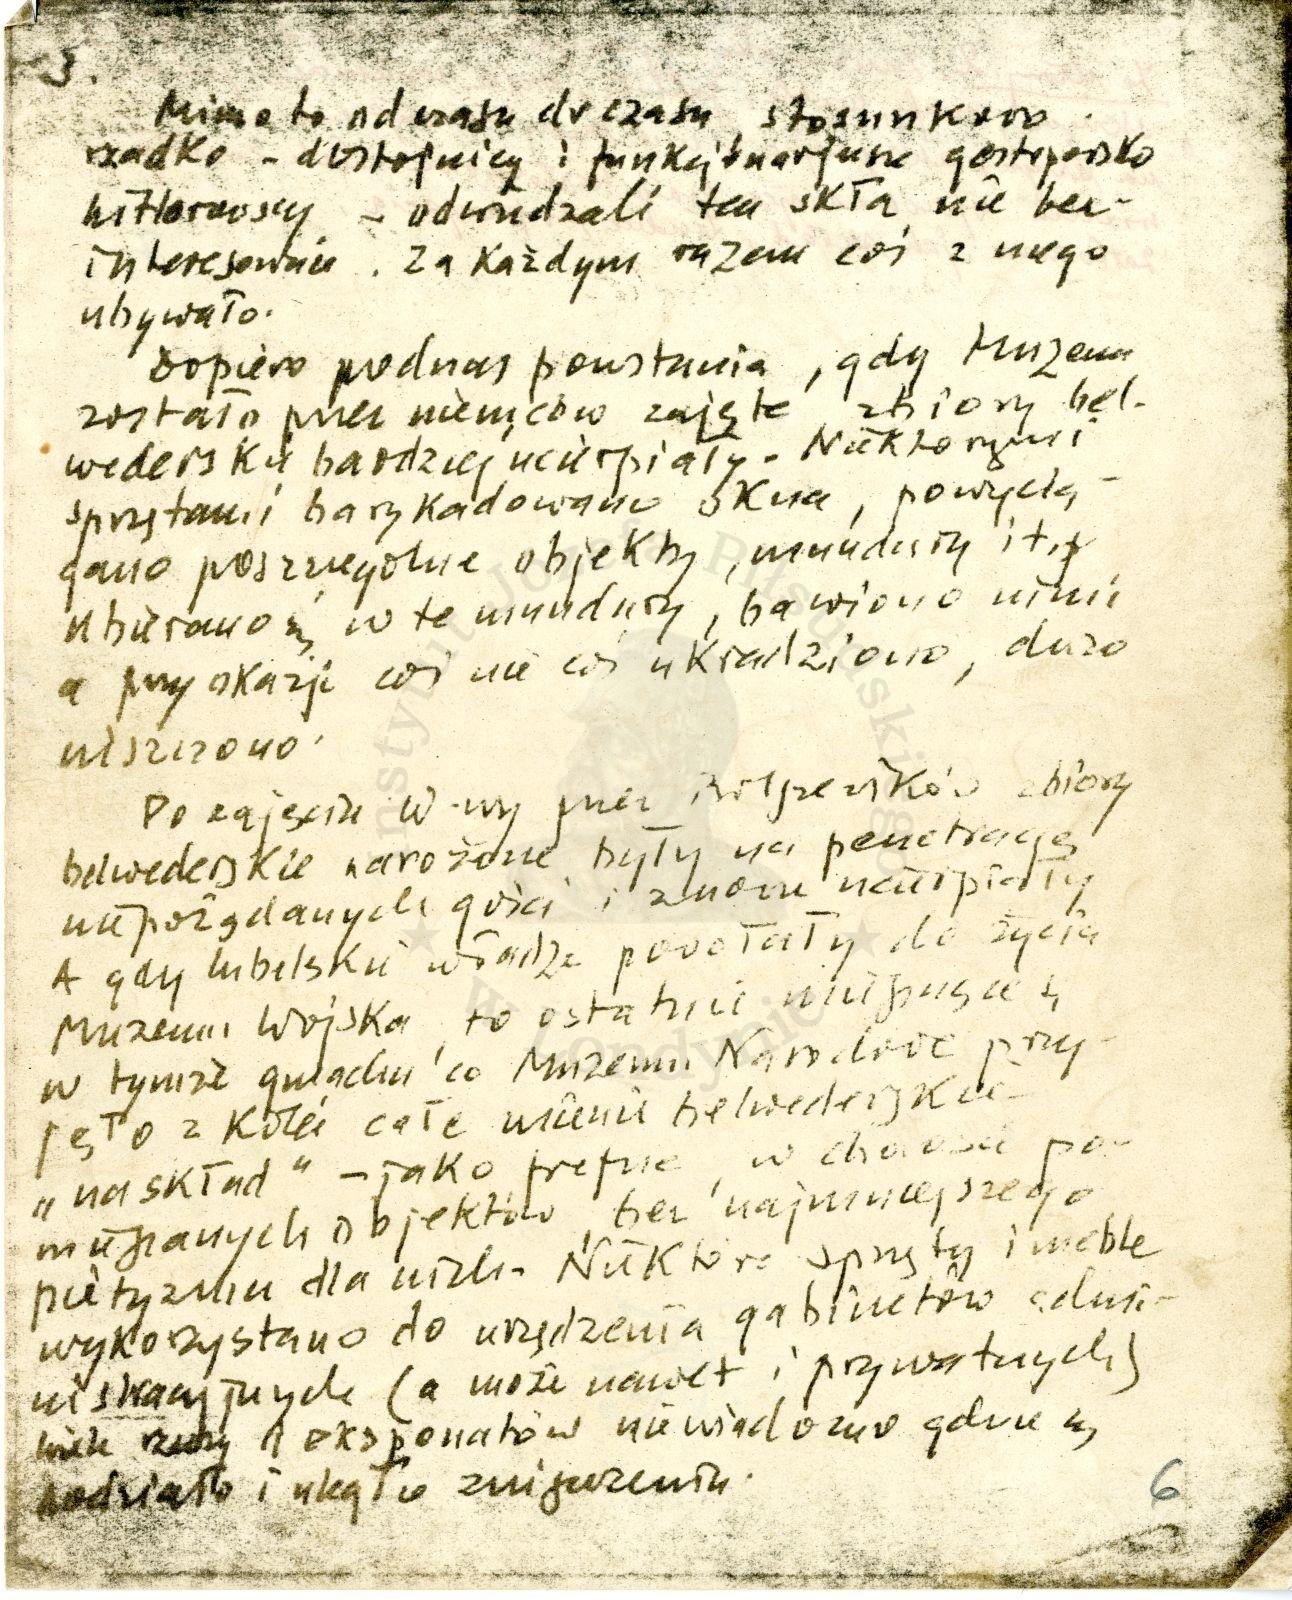 3.
Mimo to od czasu do czasu stosunkowo
rzadko – dostojnicy i funkcjonarjusze gestapowsko
hitlerowscy – odwiedzali ten skład nie bez-
interesownie. Za każdym razem coś z niego
ubywało.
Dopiero podczas powstania, gdy Muzeum
zostało przez niemców zajęte zbiory bel-
wederskie bardziej ucierpiały. Niektórymi
sprzętami barykadowano okna, powycią-
gano poszczególne objekty, mundury i t.p
ubierano się w te mundury, bawiono nimi
a przy okazji coś nie coś ukradziono, dużo
niszczono.
Po zajęciu W-wy przez Bolszewików zbiory
belwederskie narożone były na penetrację
niepożądanych gości i znowu ucierpiały
A gdy lubelskie władze powołały do życia
Muzeum Wojska, to ostatnie mieszczące się
w tymże gmachu co Muzeum Narodowe przy-
jęło z kolei całe mienie belwederskie
„na skład" – jako
mieszanych objektów, bez najmniejszego
pietyzmu dla nich. Niektóre sprzęty i meble
wykorzystano do urządzenia gabinetów admi-
nistracyjnych (a może nawet i prywatnych)
wiele rzeczy i eksponatów niewiadomo gdzie się
podziało i uległo zniszczeniu.
6
Instytut Józefa Piłsudskiego
★ W Londynie ★